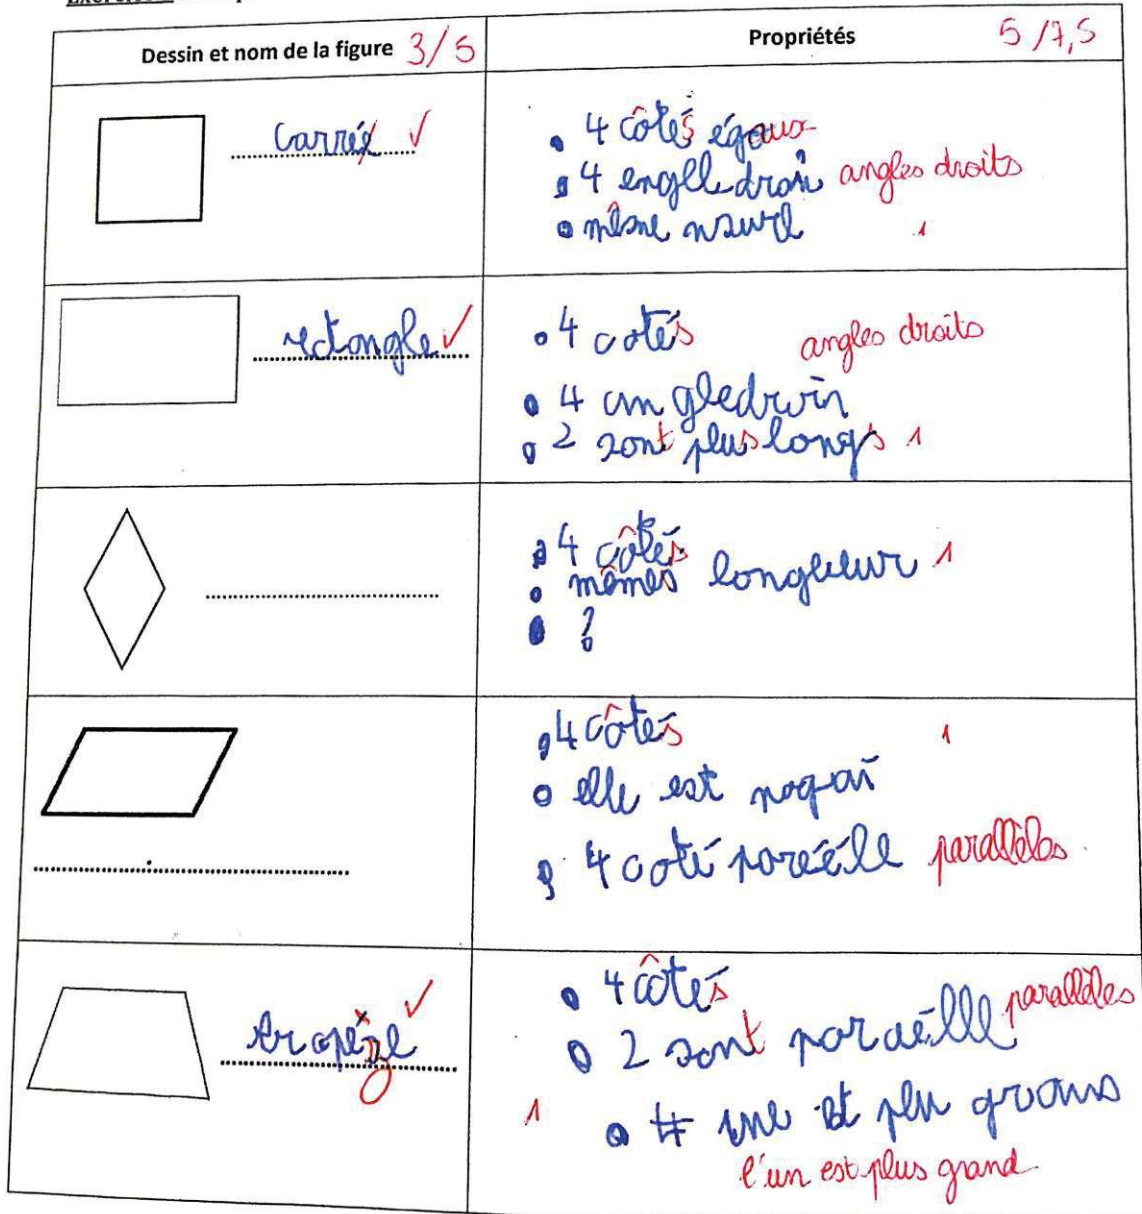 Dessin et nom de la figure 3/5
Propriétés 5/7,5
carrée
4 côtés égaux
4 englle droi angles droits
même
1
rectangle
4 cotés
angles droits
4 an gledroin
2 sont plus longs 1
4 côtés
mêmes longueur 1
?
4 côtés
1
elle est
4 coté paréèlle parallèles
trapèze
4 côtés
2 sont paraélle parallèles
1
4 une et plu grans
l'un est plus grand